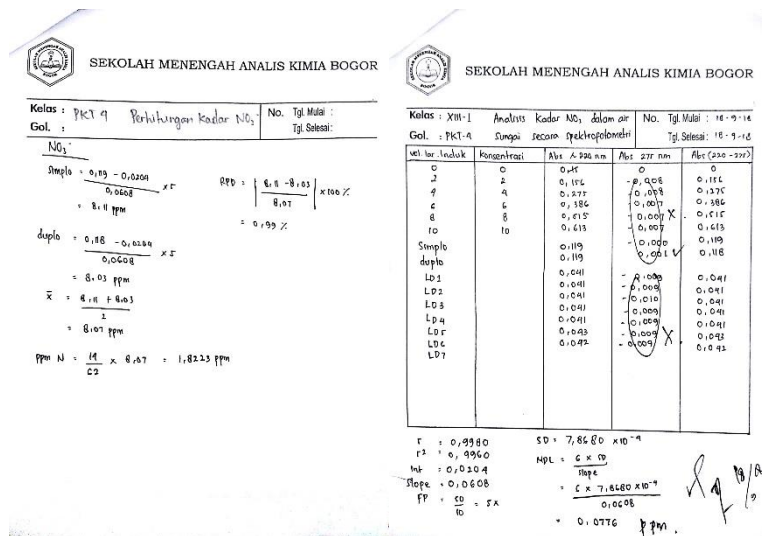 SEKOLAH MENENGAH ANALIS KIMIA BOGOR
Kelas : PKT 4 Perhitungan Kadar NO3- No. Tgl. Mulai :
Gol. : Tgl. Selesai:
NO3-
Simplo = 0,119 - 0,0204 / 0,0608 x 5
= 8,11 ppm
RPD = | 8,11 - 8,03 / 8,07 | x 100 %
= 0,99 %
duplo = 0,118 - 0,0204 / 0,0608 x 5
= 8,03 ppm
x̄ = 8,11 + 8,03 / 2
= 8,07 ppm
ppm N = 14 / 62 x 8,07 = 1,8223 ppm
SEKOLAH MENENGAH ANALIS KIMIA BOGOR
Kelas : XIII-1 Analisis Kadar NO3 dalam air No. Tgl. Mulai : 18-9-18
Gol. : PKT-4 Sungai secara spektrofotometri Tgl. Selesai: 18-9-18
vol. lar. Induk Konsentrasi Abs λ 220 nm Abs 275 nm Abs (220-275)
0 0 0 0
2 2 0,156 -0,008 0,156
4 4 0,275 -0,008 0,275
6 6 0,386 -0,007 0,386
8 8 0,515 -0,007 X 0,515
10 10 0,613 -0,007 0,613
Simplo 0,119 -0,000 0,119
duplo 0,119 0,001 ✓ 0,118
LD1 0,041 -0,009 0,041
LD2 0,041 -0,009 0,041
LD3 0,041 -0,010 0,041
LD4 0,041 -0,009 0,041
LD5 0,041 -0,009 0,041
LD6 0,043 -0,009 X 0,043
LD7 0,042 -0,009 0,042
r = 0,9980 SD = 7,8680 x10-4
r2 = 0,9960 MDL = 6 x SD / slope
Int = 0,0204
Slope = 0,0608 = 6 x 7,8680 x10-4 / 0,0608
FP = 50 / 10 = 5x
= 0,0776 ppm.